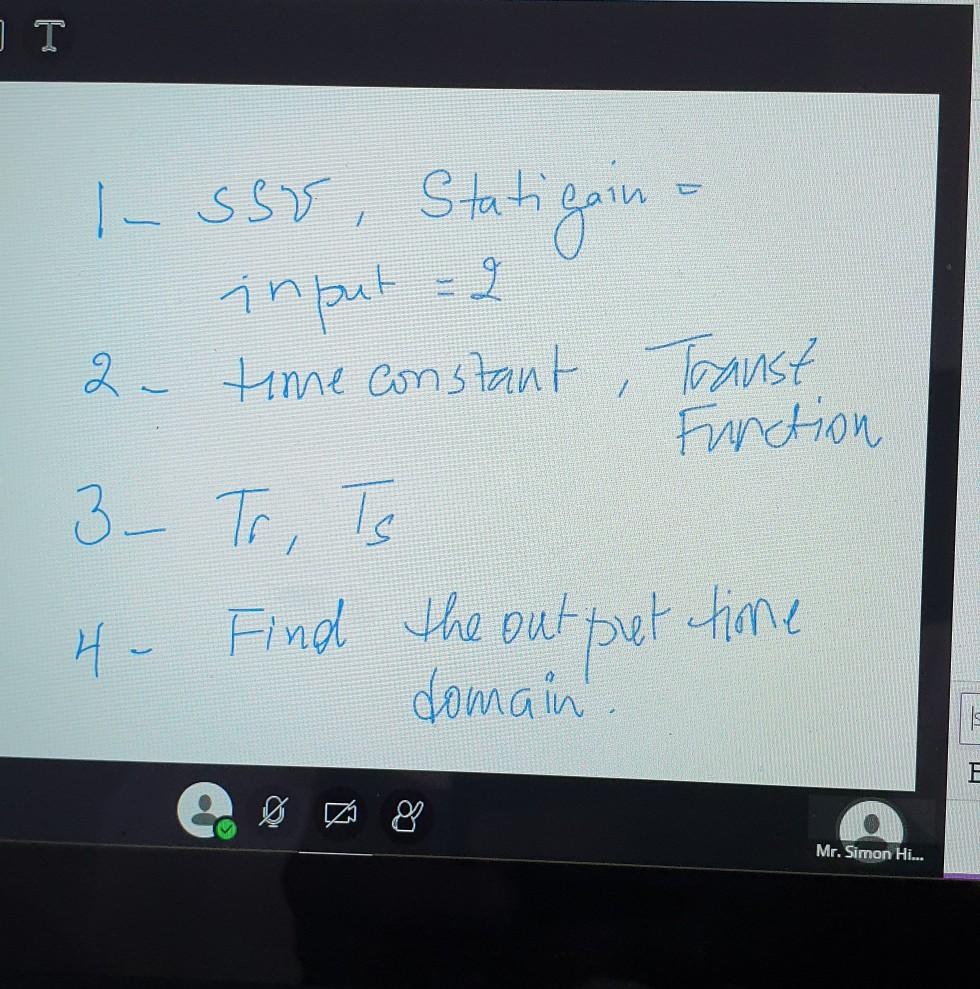 T
1- SSV, Stati gain =
input = 2
2- time constant, Transf
Function
3- Tr, Ts
4- Find the output time
domain.
Mr. Simon Hi...